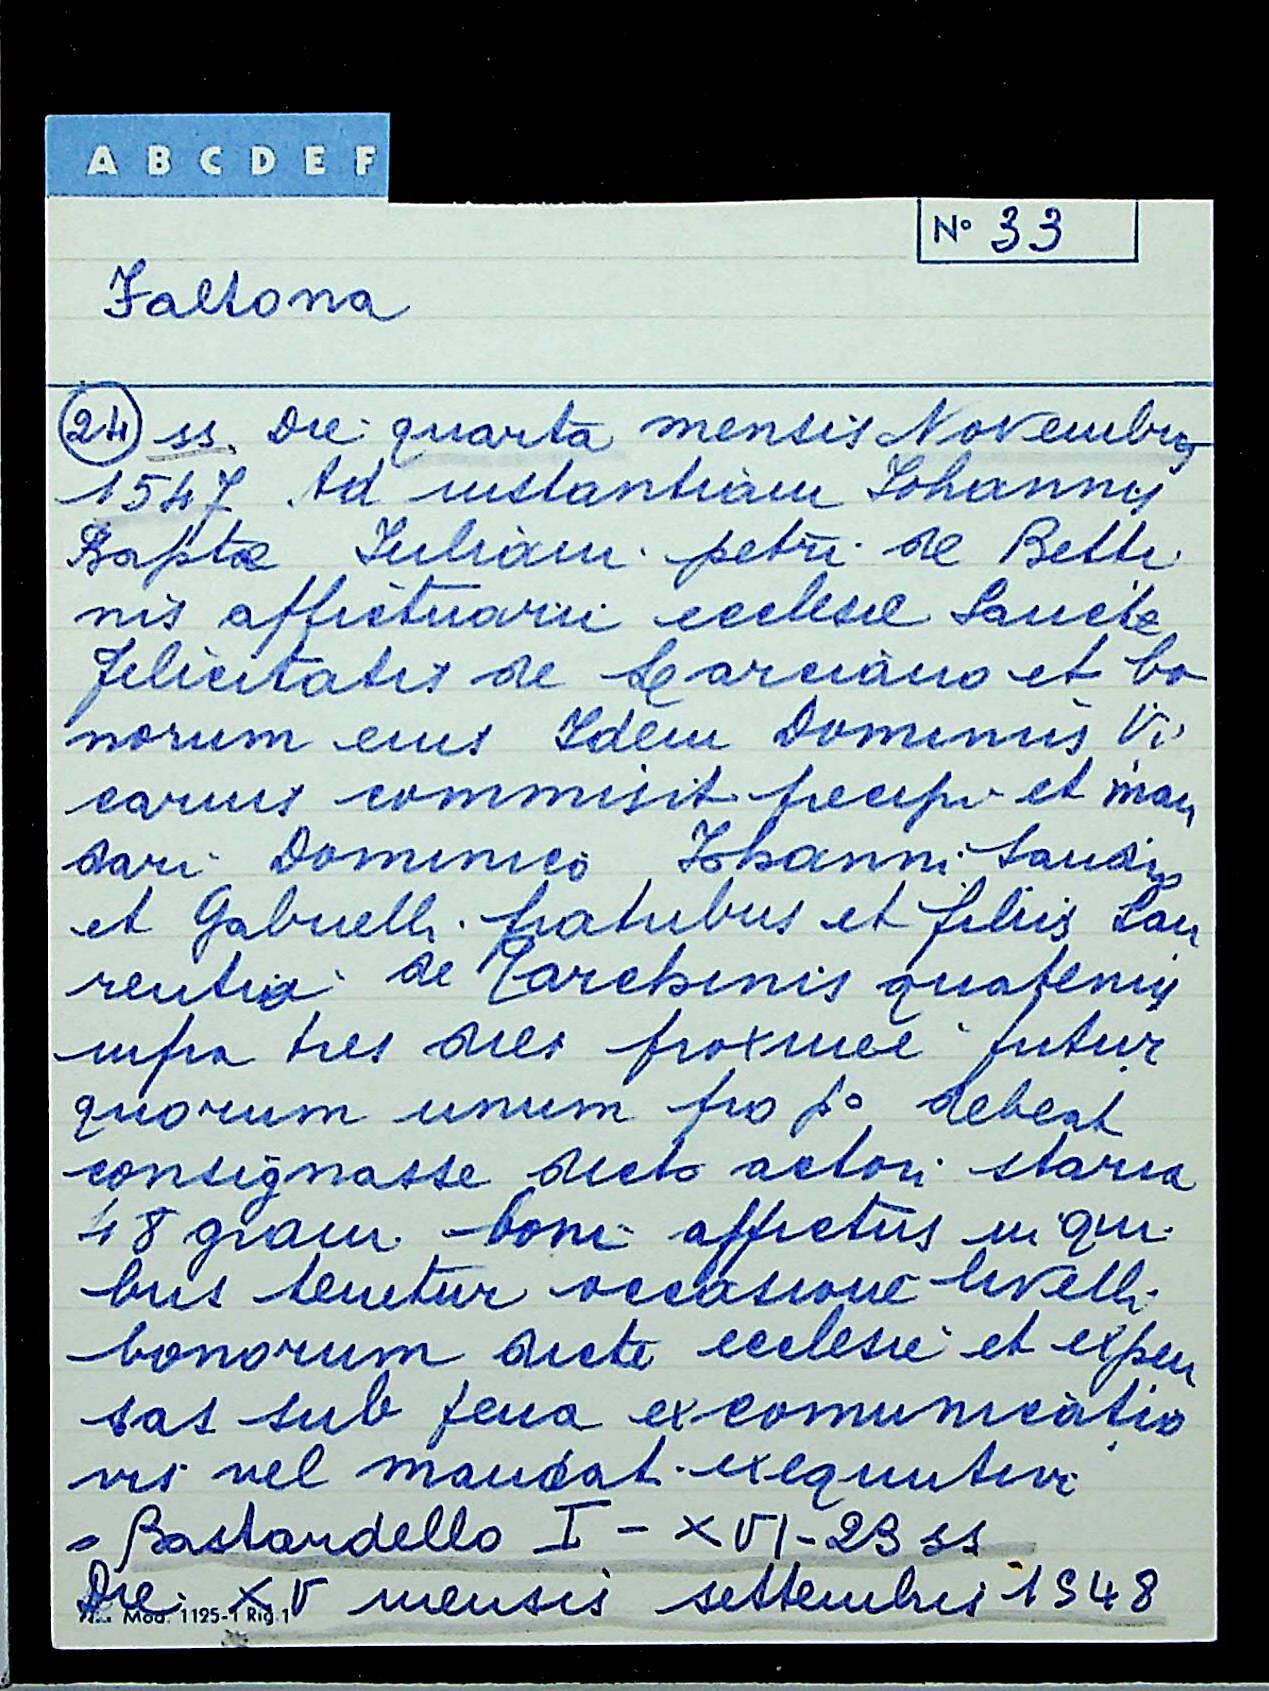 A B C D E F
N° 33
Faltona
24 ss. Die quarta mensis Novembris
1547 Ad instantiam Iohannis
Bapte Iuliani petri de Betti
nis affictuarii ecclesie Sancte
Felicitatis de Larciano et bo
norum eius Idem Dominus Vi
carius commisit precipi et man
dari Dominico Iohanni Sandro
et Gabrielli fratribus et filiis Lau
rentii de Tarchinis quatenus
infra tres dies proximee futur
quorum unum pro p° debeat
consignasse dicto actori staria
48 gran. boni affictus in qui
bus tenetur occasione livelli
bonorum dicte ecclesie et expen
sas sub pena excomunicatio
nis vel mandat. exequutivi
= Bastardello I - XVI-23 ss
Die XV mensis settembris 1548
Mod. 1125-1 Rig.1